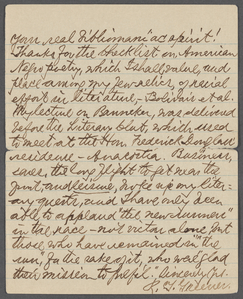 your real "bibliomaniac spirit!"
Thanks for the blacklist on American
Negro Poetry, which I shall value, and
place among my few relics, of racial
effort in literature,
My lecture on Banneker, was delivered
before the Literary Club, which used
to meet at the Hon. Frederick Douglass'
residence - Anacostia. Business,
cares, the long flight to get near the
front, and leisure, broke up my liter-
ary quests, and I have only been
able to applaud the "new runners"
in the race - not victor alone but
those who have remained "in the
run," for the sake of it, who was glad
their mission to fulfil. Sincerely Yrs.